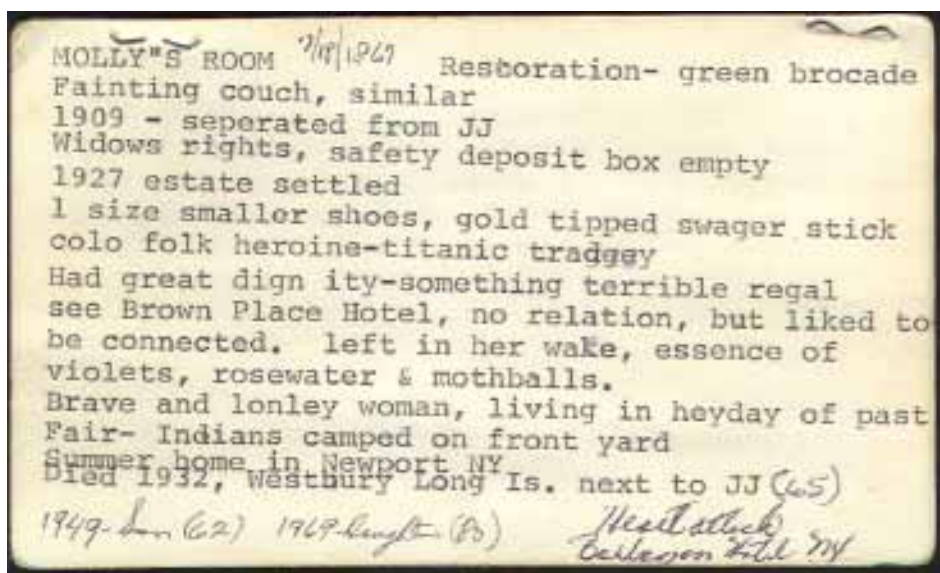 MOLLY"S ROOM 7/18/1867 Restoration- green brocade
Fainting couch, similar
1909 - seperated from JJ
Widows rights, safety deposit box empty
1927 estate settled
1 size smaller shoes, gold tipped swager stick
colo folk heroine-titanic tradgey
Had great dign ity-something terrible regal
see Brown Place Hotel, no relation, but liked to
be connected. left in her wake, essence of
violets, rosewater & mothballs.
Brave and lonley woman, living in heyday of past
Fair- Indians camped on front yard
Summer home in Newport NY
Died 1932, Westbury Long Is. next to JJ (65)
1949-Son (62) 1969-Daughter (83) Heart attack
Hotel NY